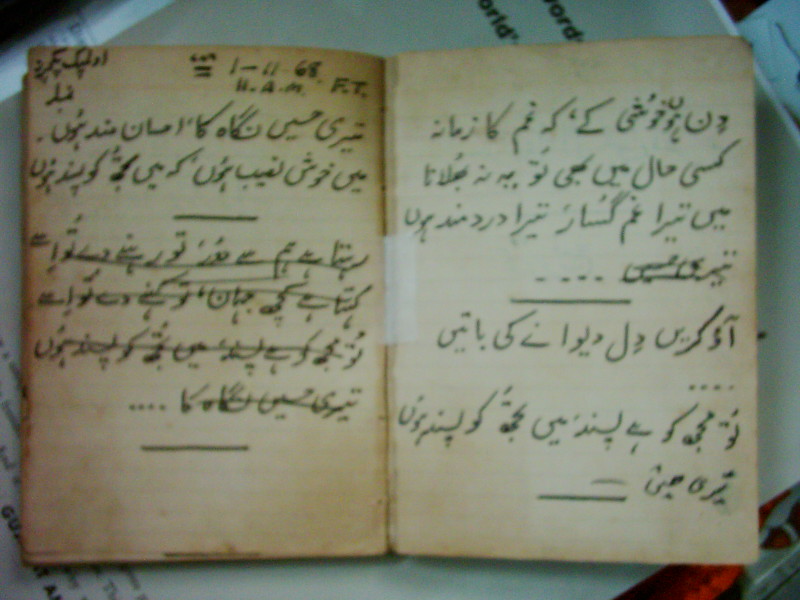 1-11-68
11-A.M. F.T.
تیری حسین نگاہ کا احسان مند ہُوں۔
میں خوش نصیب ہُوں، کہ میں تجھُ کو پسند ہُوں
رہتا ہے ہم سے دُور، تو رہنے دے تُو اِسے
کہتا ہے کچھ جہان، تو کہنے دے تُو اِسے
تُو مجھ کو ہے پسند، میں تجھُ کو پسند ہُوں
تیری حسین نگاہ کا ....
دِن ہُوں خوشی کے، کہ غم کا زمانہ
کسی حال میں بھی تُو یہ نہ بھُلانا
میں تیرا غم گُسار، تیرا درد مند ہوں
تیری حسین ....
آؤ کریں دِل دیوانے کی باتیں
....
تُو مجھ کو ہے پسند، میں تجھُ کو پسند ہُوں
تیری حسین
world'
word